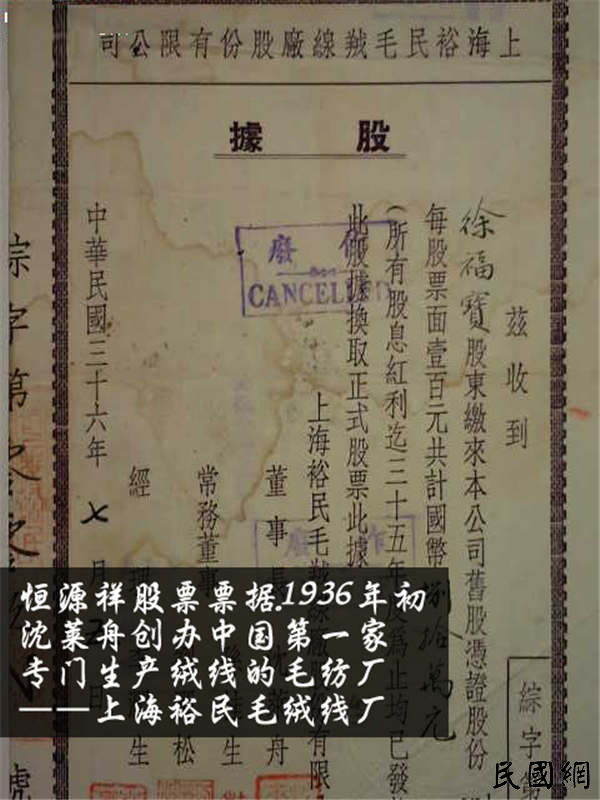 上海裕民毛羢線廠股份有限公司
股據
茲收到
徐福寶股東繳來本公司舊股憑證股份
每股票面壹百元共計國幣捌拾萬元
(所有股息紅利迄三十五年
為止均已發
此股據換取正式股票此據
上海裕民毛羢線廠股份有限
董事長
舟
常務董事
生
松
經理
生
中華民國三十六年七月
日
綜字第
號
綜字第
作廢
CANCELLED
作廢
恒源祥股票票据.1936年初
沈莱舟创办中国第一家
专门生产绒线的毛纺厂
——上海裕民毛绒线厂
民國網